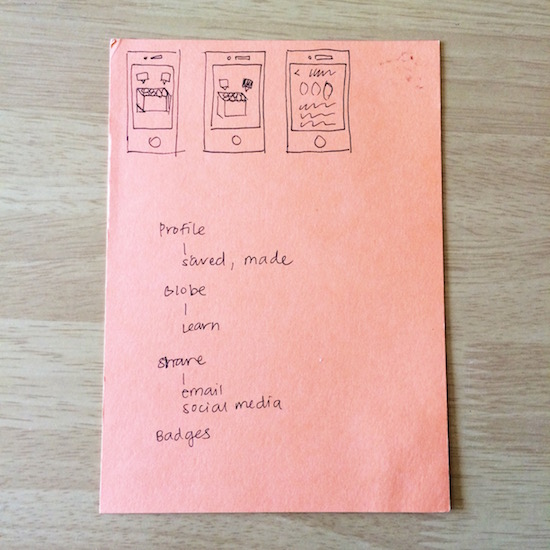 Profile
saved, made
Globe
Learn
share
email
social media
Badges